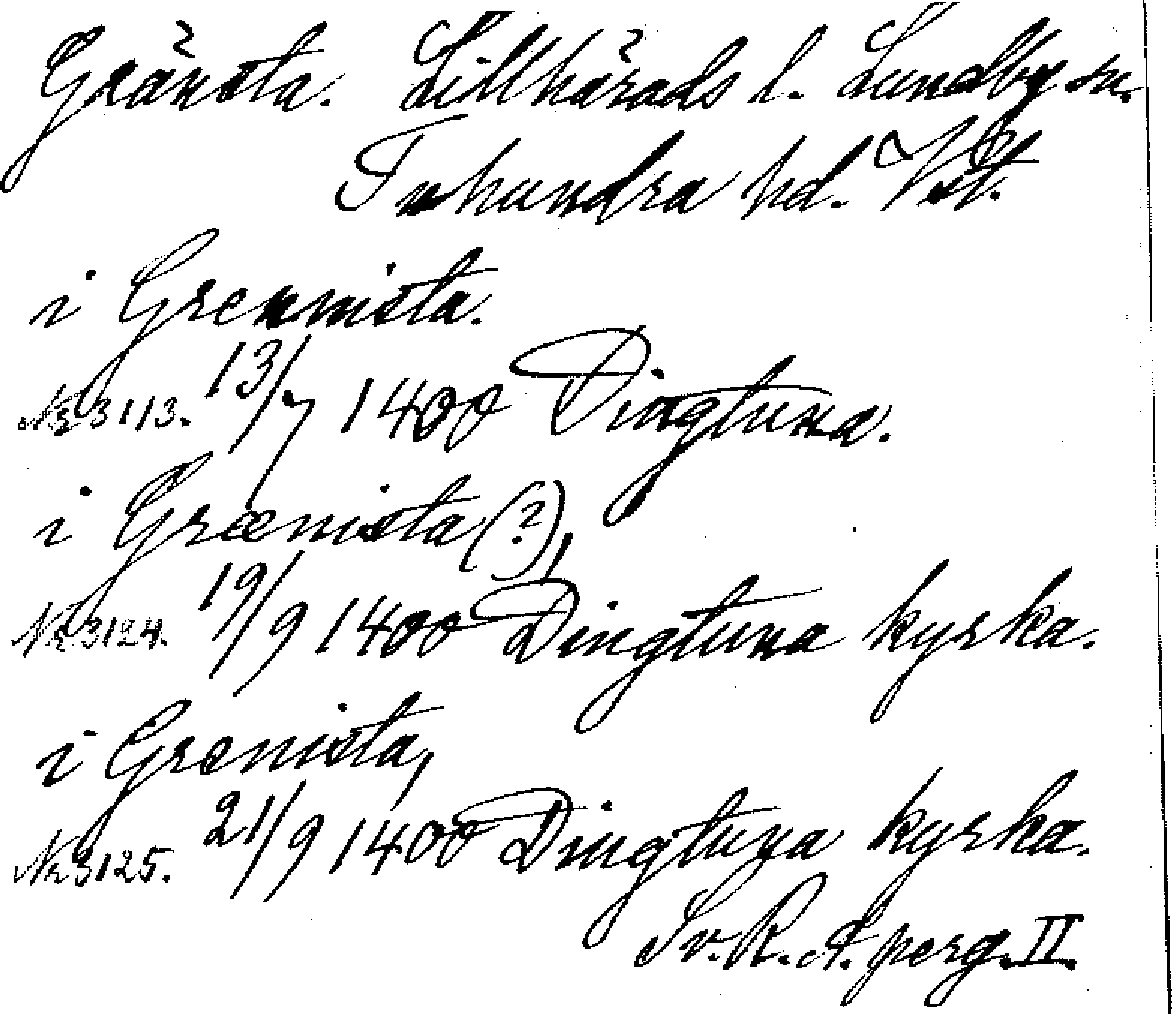 Gränsta. Lillhärads l. Lundby sn.
Tuhundra hd. Vstt.
i Grennista.
Nr 3113. 13/7 1400 Dingtuna.
i Grænista (?),
Nr 3124. 19/9 1400 Dingtuna kyrka.
i Grenista,
Nr 3125. 21/9 1400 Dingtuna kyrka.
Sv. R. A. perg. II.